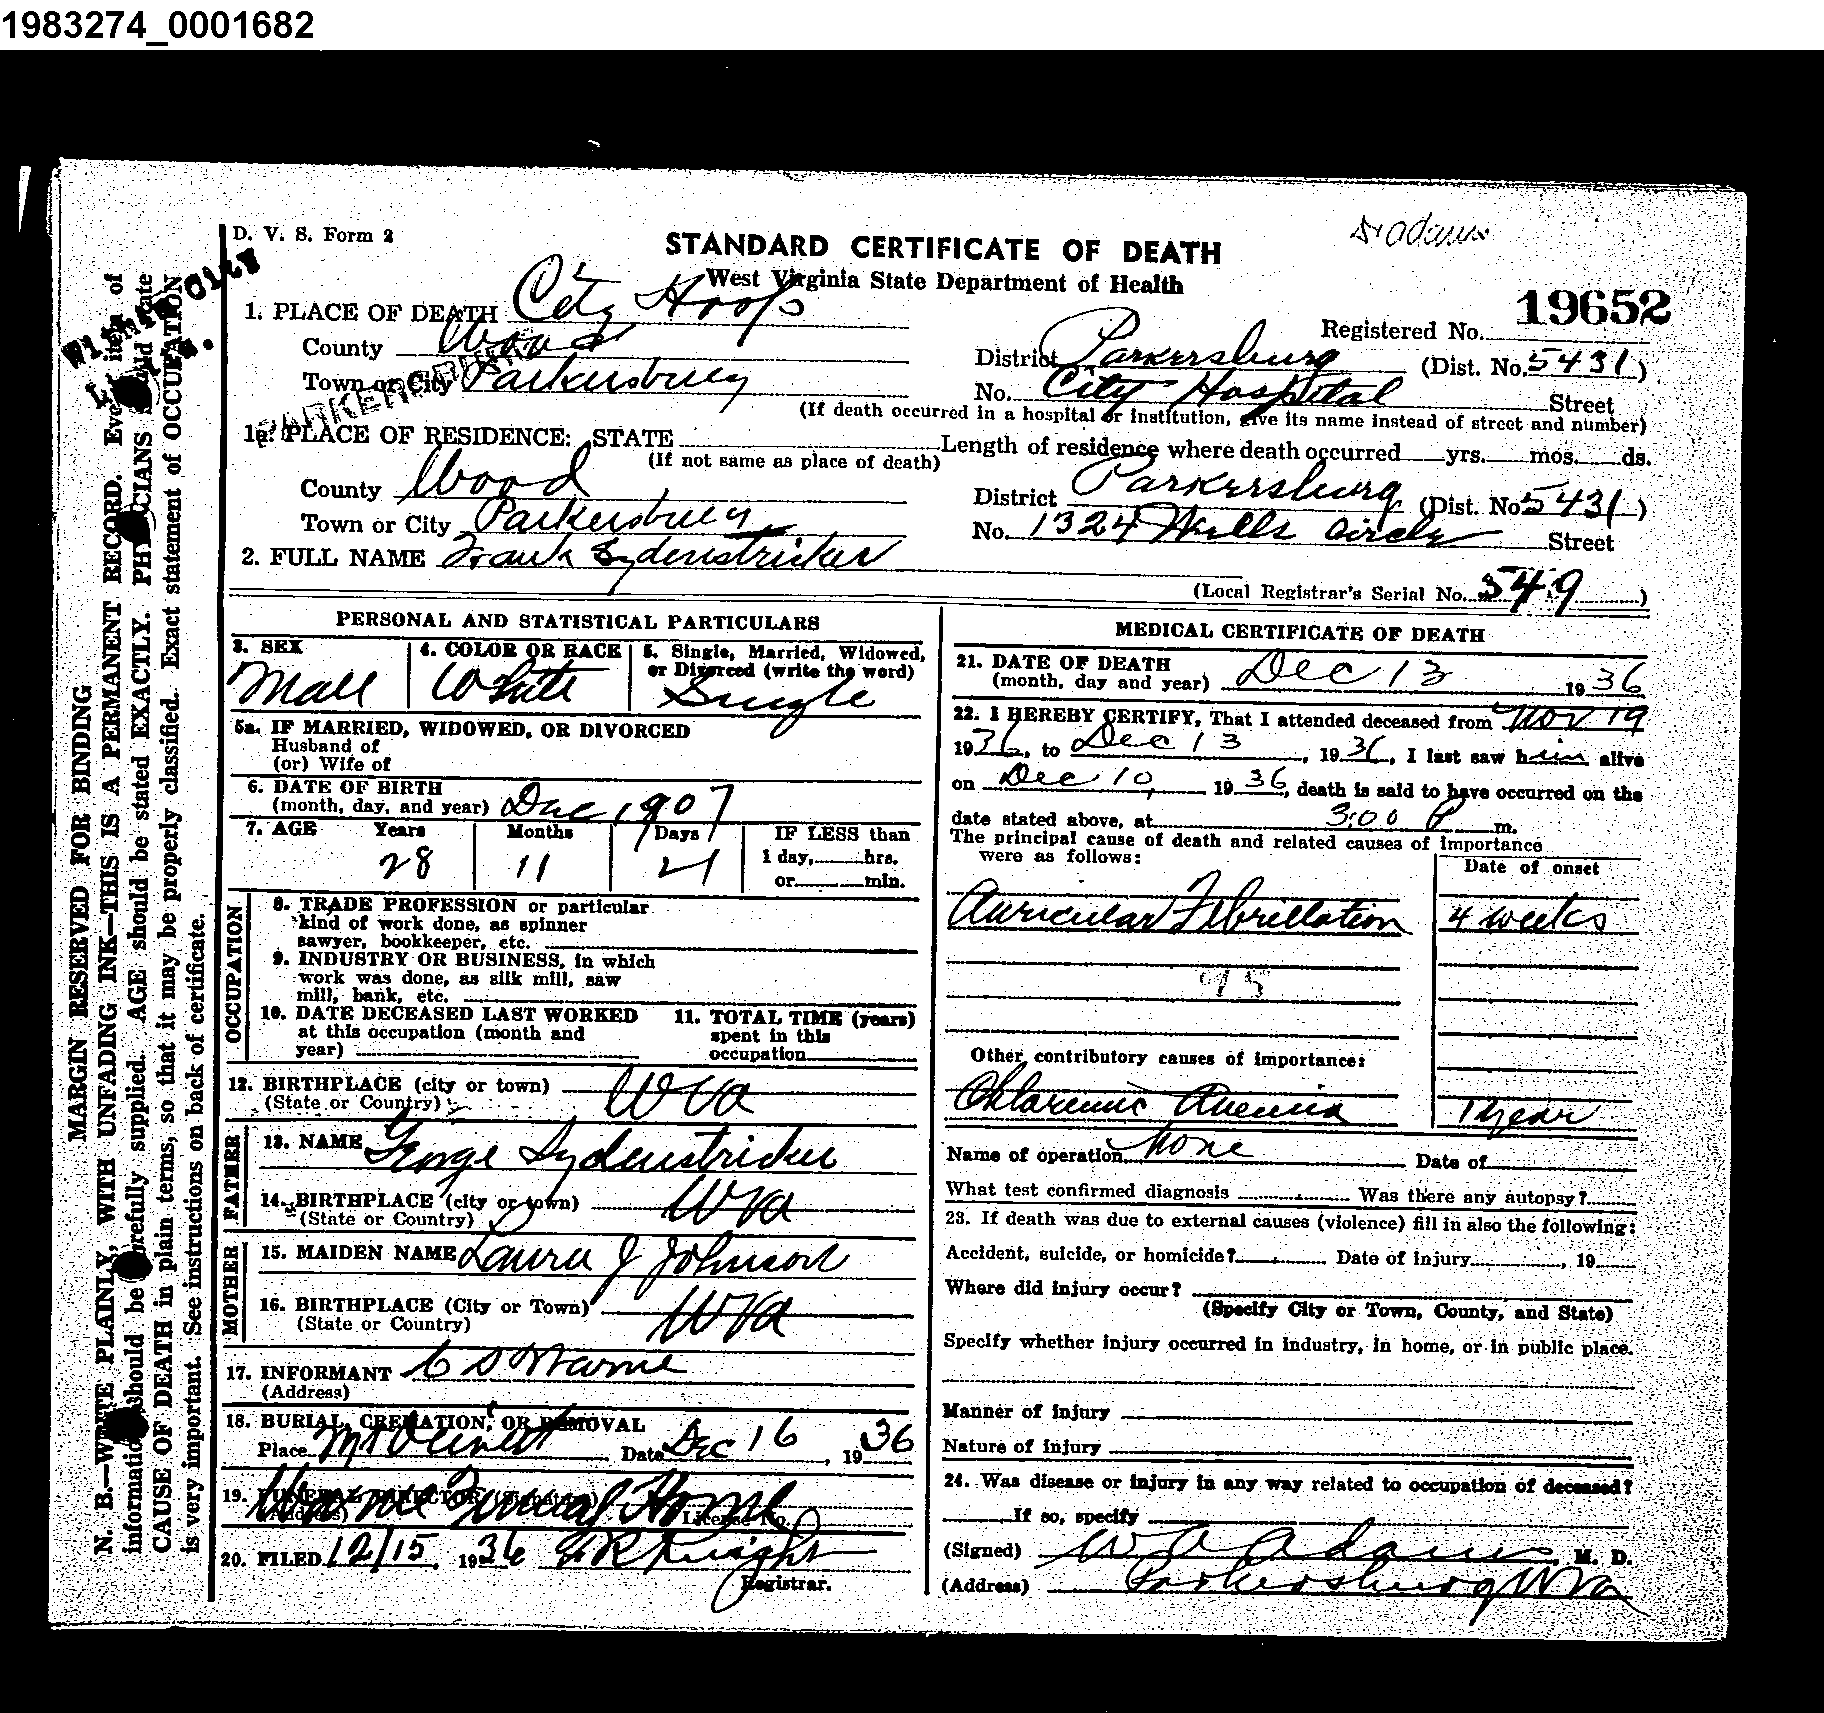 1983274_0001682
Dr Adams
D. V. S. Form 2
STANDARD CERTIFICATE OF DEATH
West Virginia State Department of Health
19652
Registered No.
1. PLACE OF DEATH City Hosp
County Wood
District Parkersburg (Dist. No. 5431)
Town or City Parkersburg
No. City Hospital Street
(If death occurred in a hospital or institution, give its name instead of street and number)
PARKERSBURG
Within City
1a. PLACE OF RESIDENCE: STATE
(If not same as place of death)
Length of residence where death occurred yrs. mos. ds.
County Wood
District Parkersburg (Dist. No. 5431)
Town or City Parkersburg
No. 1324 Wells Circle Street
2. FULL NAME Frank Sydenstricker
(Local Registrar's Serial No. 549)
PERSONAL AND STATISTICAL PARTICULARS
3. SEX
Male
4. COLOR OR RACE
White
5. Single, Married, Widowed,
or Divorced (write the word)
Single
5a. IF MARRIED, WIDOWED, OR DIVORCED
Husband of
(or) Wife of
6. DATE OF BIRTH
(month, day, and year) Dec 1907
7. AGE Years Months Days
28 11 21
IF LESS than
1 day, hrs.
or min.
OCCUPATION
8. TRADE PROFESSION or particular
kind of work done, as spinner
sawyer, bookkeeper, etc.
9. INDUSTRY OR BUSINESS, in which
work was done, as silk mill, saw
mill, bank, etc.
10. DATE DECEASED LAST WORKED
at this occupation (month and
year)
11. TOTAL TIME (years)
spent in this
occupation
12. BIRTHPLACE (city or town) W Va
(State or Country)
FATHER
13. NAME George Sydenstricker
14. BIRTHPLACE (city or town) W Va
(State or Country)
MOTHER
15. MAIDEN NAME Laura J Johnson
16. BIRTHPLACE (City or Town) W Va
(State or Country)
17. INFORMANT C S Warne
(Address)
18. BURIAL, CREMATION, OR REMOVAL
Place Mt Olivett Date Dec 16, 1936
19. FUNERAL DIRECTOR Warne Funeral Home
(Address) License No.
20. FILED 12/15, 1936 Knight
Registrar.
MEDICAL CERTIFICATE OF DEATH
21. DATE OF DEATH
(month, day and year) Dec 13 1936
22. I HEREBY CERTIFY, That I attended deceased from Nov 19
1936, to Dec 13, 1936, I last saw him alive
on Dec 10, 1936, death is said to have occurred on the
date stated above, at 3:00 P m.
The principal cause of death and related causes of importance
were as follows:
Date of onset
Auricular Fibrillation 4 weeks
95
Other contributory causes of importance:
Chloremic Anemia 1 year
Name of operation None Date of
What test confirmed diagnosis Was there any autopsy?
23. If death was due to external causes (violence) fill in also the following:
Accident, suicide, or homicide? Date of injury , 19
Where did injury occur?
(Specify City or Town, County, and State)
Specify whether injury occurred in industry, in home, or in public place.
Manner of injury
Nature of injury
24. Was disease or injury in any way related to occupation of deceased?
If so, specify
(Signed) W A Adams, M. D.
(Address) Parkersburg W Va
MARGIN RESERVED FOR BINDING
N. B.—WRITE PLAINLY, WITH UNFADING INK—THIS IS A PERMANENT RECORD. Every item of
information should be carefully supplied. AGE should be stated EXACTLY. PHYSICIANS should state
CAUSE OF DEATH in plain terms, so that it may be properly classified. Exact statement of OCCUPATION
is very important. See instructions on back of certificate.